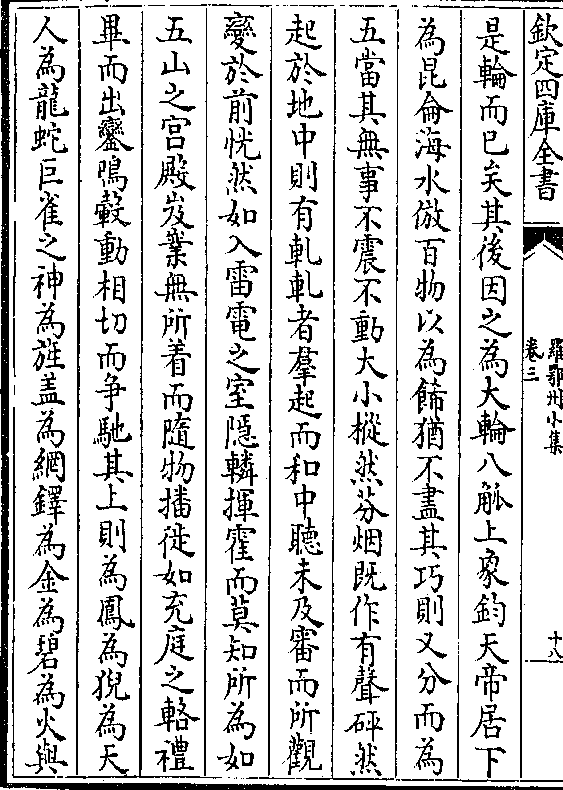 欽定四庫全書
羅鄂州小集
卷三
十八
是輪而已矣其後因之為大輪八觚上象鈞天帝居下
為昆侖海水倣百物以為餙猶不盡其巧則又分而為
五當其無事不震不動大小樅然芬烟既作有聲砰然
起於地中則有軋軋者羣起而和中聽未及審而所觀
變於前恍然如入雷電之室隱轔揮霍而莫知所為如
五山之宫殿岌嶪無所着而隨物播徙如充庭之輅禮
畢而出鑾鳴轂動相切而争馳其上則為鳳為猊為天
人為龍蛇巨雀之神為旌盖為網鐸為金為碧為火與